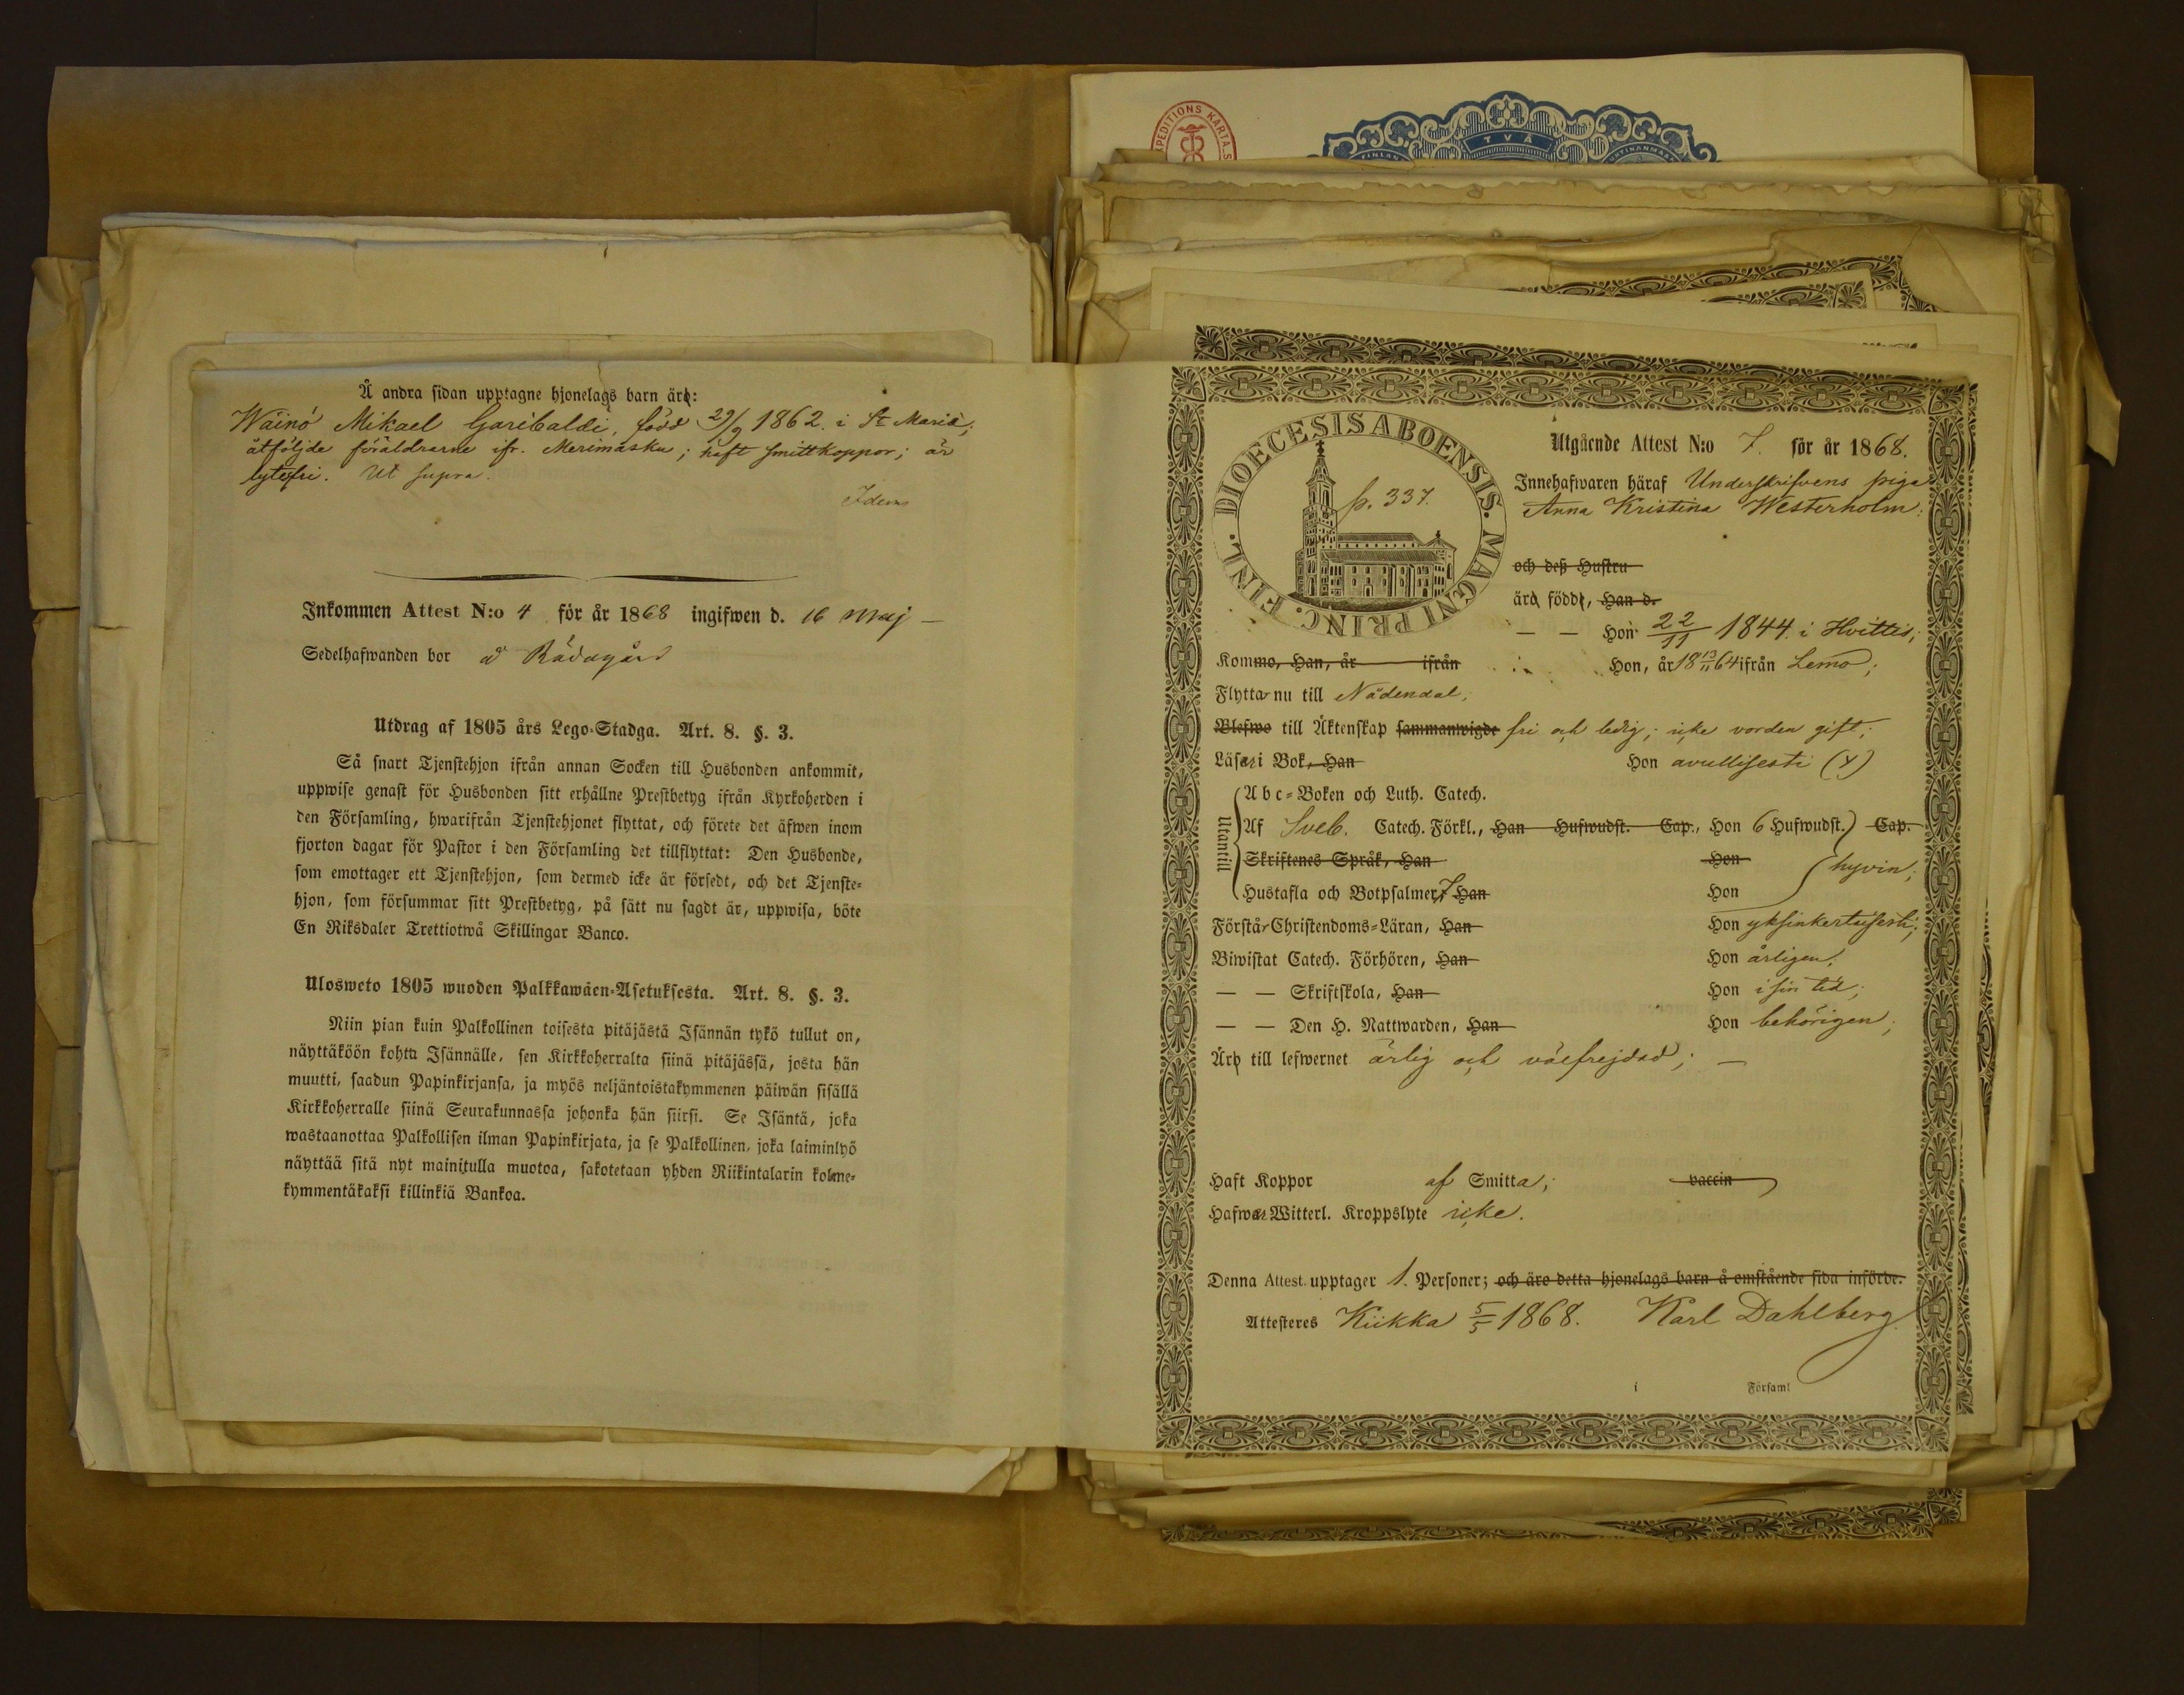 EXPEDITIONS KARTA.S
TVÅ
Å andra sidan upptagne hjonelags barn är:
Wäinö Mikael Garibaldi, född 29/9 1862. i St Mariæ;
åtföljde föräldrarne ifr. Merimasku; haft smittkoppor; är
lytesfri. Ut supra.
Idem
Inkommen Attest N:o 4 för år 1868 ingifwen d. 16 Maj —
Sedelhafwanden bor å Rådagård
Utdrag af 1805 års Lego-Stadga. Art. 8. §. 3.
Så snart Tjenstehjon ifrån annan Socken till Husbonden ankommit,
uppwise genast för Husbonden sitt erhållne Prestbetyg ifrån Kyrkoherden i
den Församling, hwarifrån Tjenstehjonet flyttat, och förete det äfwen inom
fjorton dagar för Pastor i den Församling det tillflyttat: Den Husbonde,
som emottager ett Tjenstehjon, som dermed icke är försedt, och det Tjenste-
hjon, som försummar sitt Prestbetyg, på sätt nu sagdt är, uppwisa, böte
En Riksdaler Trettiotwå Skillingar Banco.
Ulosweto 1805 wuoden Palkkawäen-Asetuksesta. Art. 8. §. 3.
Niin pian kuin Palkollinen toisesta pitäjästä Isännän tykö tullut on,
näyttäköön kohta Isännälle, sen Kirkkoherralta siinä pitäjässä, josta hän
muutti, saadun Papinkirjansa, ja myös neljäntoistakymmenen päiwän sisällä
Kirkkoherralle siinä Seurakunnassa johonka hän siirsi. Se Isäntä, joka
wastaanottaa Palkollisen ilman Papinkirjata, ja se Palkollinen, joka laiminlyö
näyttää sitä nyt mainitulla muotoa, sakotetaan yhden Riikintalarin kolme-
kymmentäkaksi killinkiä Bankoa.
DIOECESIS ABOENSIS. MAGNI PRINC. FINL.
p. 337.
Utgående Attest N:o 7. för år 1868.
Innehafwaren häraf Underskrifvens piga
Anna Kristina Westerholm;
och deß Hustru
äro född, Han d.
— — Hon 22/11 1844. i Hvittis;
Kommo, Han, år ifrån Hon, år 18 13/11 64 ifrån Lemo;
Flyttar nu till Nådendal;
Blefwo till Äktenskap sammanwigde fri och ledig; icke vorden gift;
Läser i Bok, Han Hon avullisesti (4)
Utantill
Abc-Boken och Luth. Catech.
Af Sveb. Catech. Förkl., Han Hufwudst. Cap., Hon 6 Hufwudst. Cap.
Skriftenes Språk, Han Hon hyvin;
Hustafla och Botpsalmer, 7 Han Hon
Förstår Christendoms-Läran, Han Hon yksinkertaisesti;
Biwistat Catech. Förhören, Han Hon årligen;
— — Skriftskola, Han Hon i sin tid;
— — Den H. Nattwarden, Han Hon behörigen;
Är till lefwernet ärlig och välfrejdad; —
Haft Koppor af Smitta; vaccin
Hafwer Witterl. Kroppslyte icke.
Denna Attest upptager 1. Personer; och äro detta hjonelags barn å omstående sida införde.
Attesteres Kiikka 5/5 1868. Karl Dahlberg.
i Församl